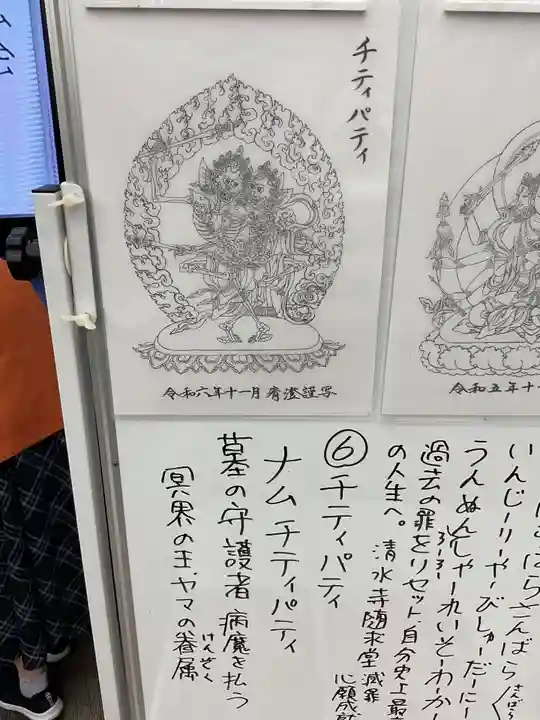 チティパティ
令和六年十一月 宥澄謹写
令和五年十一
いんじーりーやーびしゅーだーにー
うんぬんしゃーれいそーわーか
過去の罪をリセット、自分史上最
の人生へ。 清水寺随求堂 滅罪
心願成就
⑥チティパティ
ナム チティパティ
墓の守護者 病魔を払う
冥界の王、ヤマの眷属
けんぞく